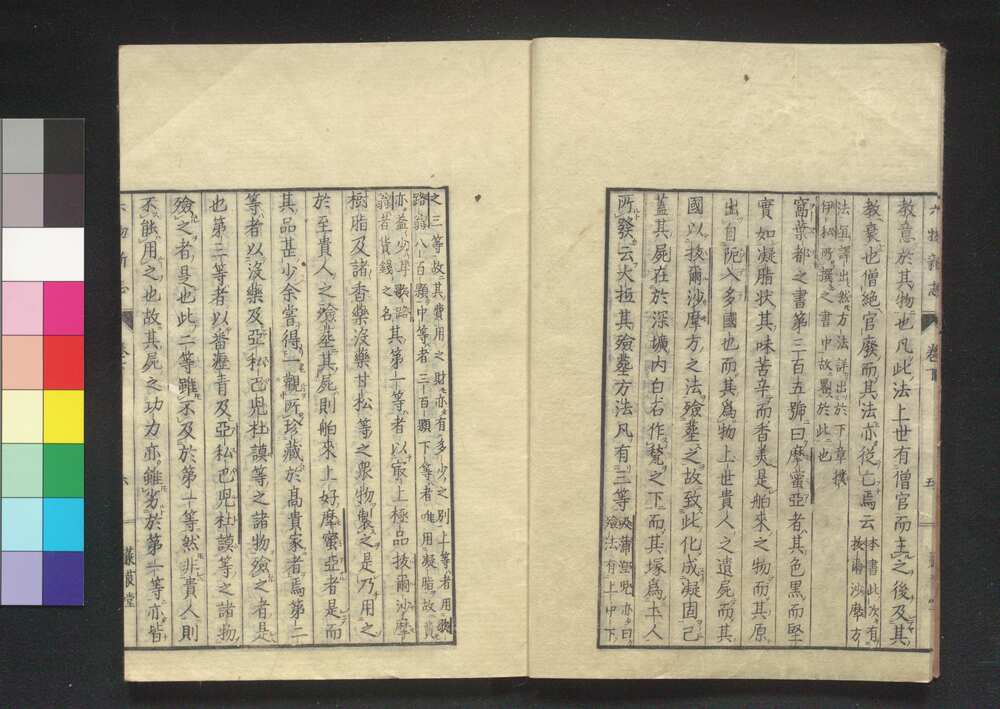 教意於其物也凡此法上世有僧官而主之後及其
教衰也僧絶官廢而其法亦從亡焉云本書此次有抜爾沙摩方
法且譯出然方法詳出於下章撲
伊松所撰之書中故畧於此也
窩葉都之書第三百五號曰摩蜜亞者其色黒而堅
實如凝脂状其味苦辛而香美是舶來之物而其原
出自阨入多國也而其為物上世貴人之遺屍而其
國以抜爾沙摩方之法殮塟之故致此化成凝固己
蓋其屍在於深壙内白石作甃之下而其塚為土人
所發云大抵其殮塟方法凡有三等殮法有上中下
之三等故其費用之財亦有多少之別上等者用
八百顆中等者三百顆下等者唯用凝脂故
亦少耳貨錢之名其第一等者以最上極品抜爾沙摩
樹脂及諸香藥沒藥甘松等之衆物製之是乃用之
於至貴人之殮塟其屍則舶來上好摩蜜亞者是而
其品甚少余嘗得一觀所珍藏於高貴家者焉第二
等者以沒藥及亞私巴児杜謨等之諸物殮之者是
也第三等者以番瀝青及亞私巴児杜謨等之諸物
殮之者是也此二等雖不及於第一等然非貴人則
不能用之也故其屍之功力亦雖劣於第一等亦皆
六物新志
卷下
五
六
蒹葭堂